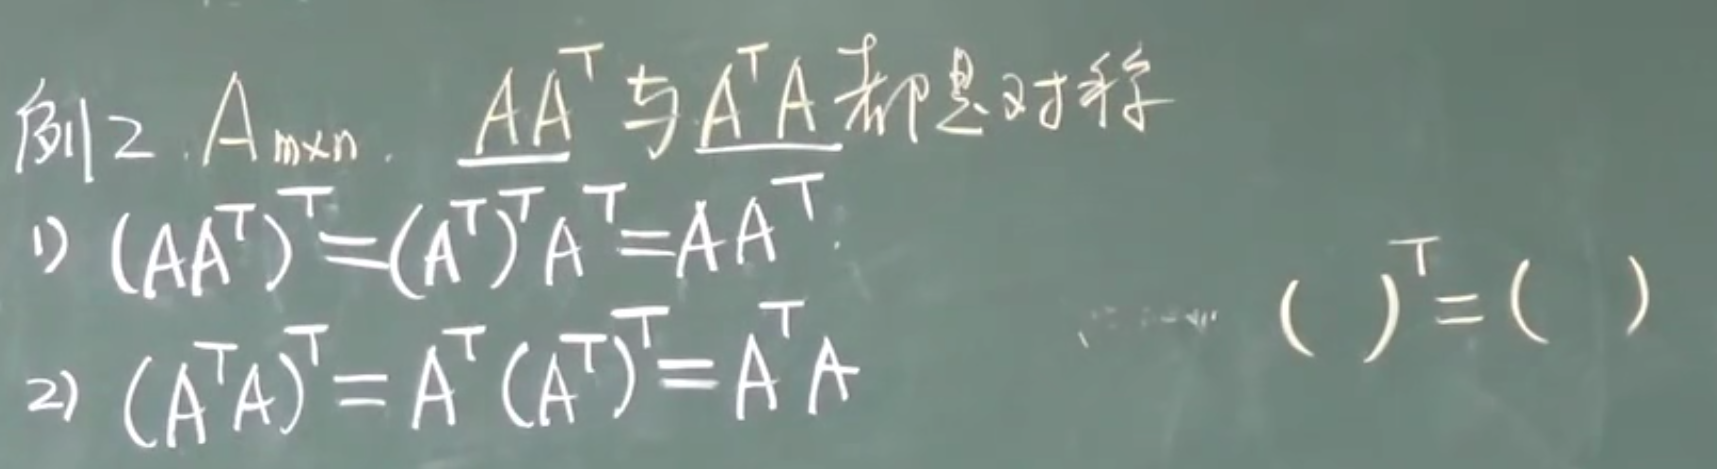 例2. Aₘₓₙ. AAᵀ与AᵀA都是对称
1) (AAᵀ)ᵀ=(Aᵀ)ᵀAᵀ=AAᵀ.
( )ᵀ=( )
2) (AᵀA)ᵀ=Aᵀ(Aᵀ)ᵀ=AᵀA